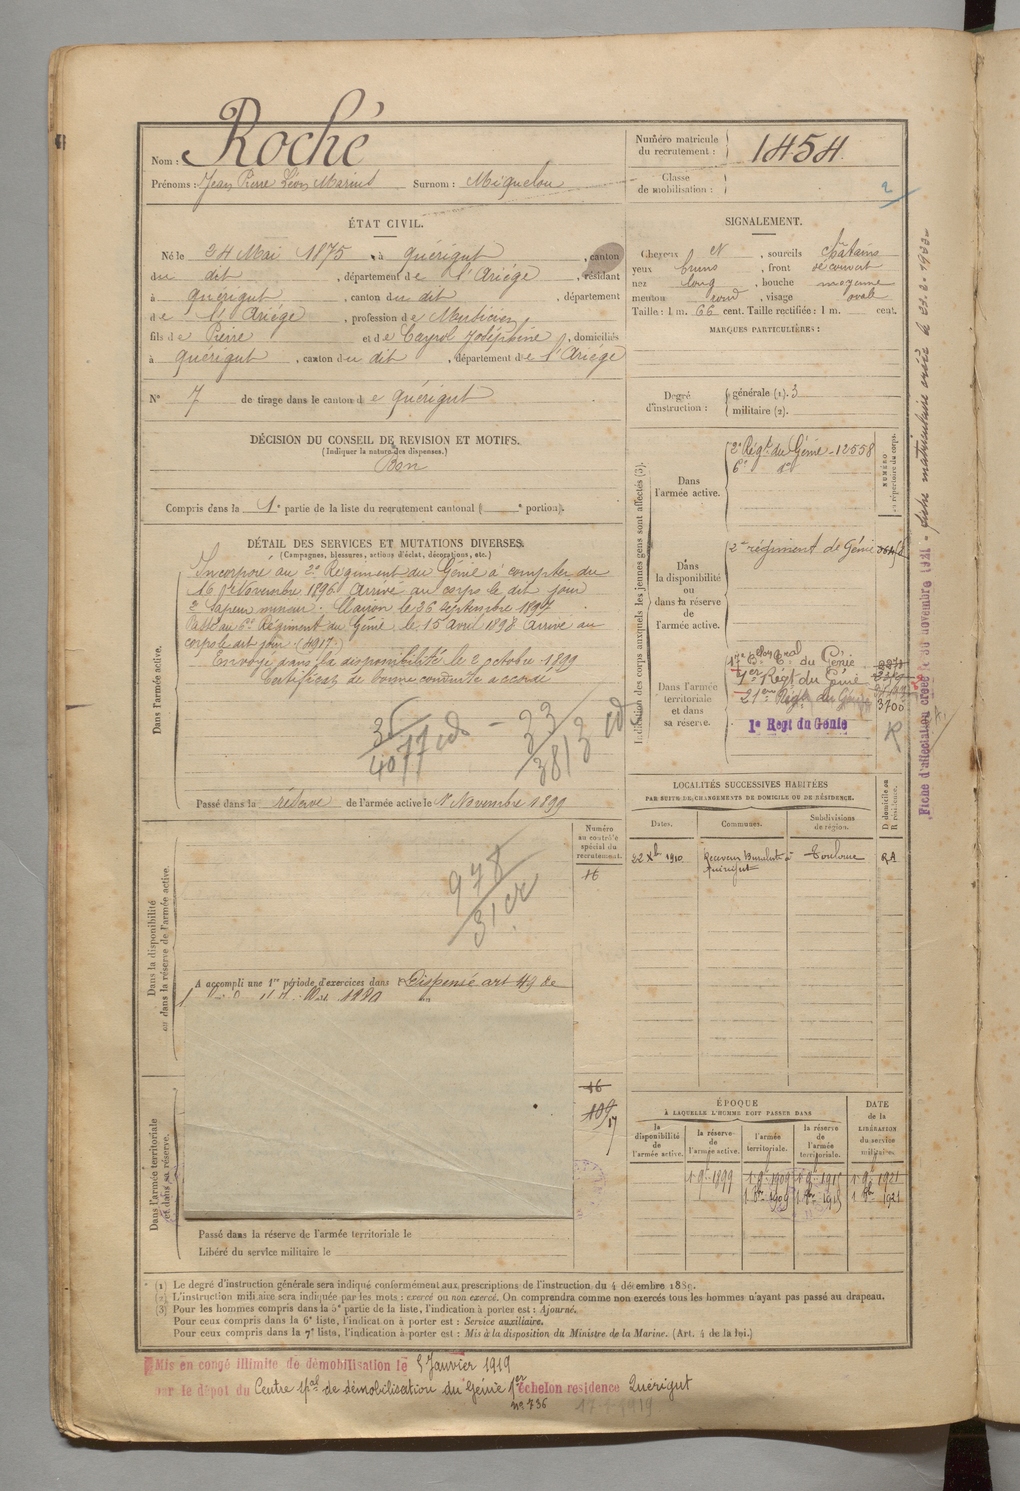 Nom : Roché
Prénoms : Jean Pierre Léon Marius Surnom : Miquelou
Numéro matricule du recrutement : 1454
Classe de mobilisation :
2
ÉTAT CIVIL.
Né le 24 Mai 1875, à Quérigut, canton
du dit, département de l'Ariége, résidant
à Quérigut, canton du dit, département
de l'Ariége, profession de Musicien
fils de Pierre et de Cayrol Joséphine, domiciliés
à Quérigut, canton du dit, département de l'Ariége
N° 7 de tirage dans le canton de Quérigut
DÉCISION DU CONSEIL DE REVISION ET MOTIFS.
(Indiquer la nature des dispenses.)
Bon
Compris dans la 1e partie de la liste du recrutement cantonal ( e portion).
SIGNALEMENT.
Cheveux N, sourcils châtains
yeux bruns, front découvert
nez long, bouche moyenne
menton rond, visage ovale
Taille : 1 m. 66 cent. Taille rectifiée : 1 m. cent.
MARQUES PARTICULIÈRES :
Degré d'instruction : générale (1). 3
militaire (2).
Indication des corps auxquels les jeunes gens sont affectés (3).
NUMÉRO au répertoire du corps.
Dans l'armée active.
2e Régt du Génie - 12558
6e do
Dans la disponibilité ou dans la réserve de l'armée active.
2e régiment de Génie
Dans l'armée territoriale et dans sa réserve.
Bon du Génie
1er Régt du Génie
21eme Régt du Génie
3700
1e Regt du Génie
R
DÉTAIL DES SERVICES ET MUTATIONS DIVERSES.
(Campagnes, blessures, actions d'éclat, décorations, etc.)
Dans l'armée active.
Incorporé au 2e Régiment du Génie à compter du
16 Novembre 1896. Arrivé au corps le dit jour
2e Sapeur mineur. Clairon le 26 septembre 1897
Passé au 6e Régiment du Génie le 15 avril 1898 Arrivé au
corps le dit jour (4917)
Envoyé dans la disponibilité le 2 octobre 1899
Certificat de bonne conduite accordé
35
4077
23
3813
Passé dans la réserve de l'armée active le 1er Novembre 1899
Numéro au contrôle spécial du recrutement.
16
Dans la disponibilité ou dans la réserve de l'armée active.
978
31
A accompli une 1re période d'exercices dans l Dispensé art 49 de
16
109
17
Dans l'armée territoriale et dans sa réserve.
Passé dans la réserve de l'armée territoriale le
Libéré du service militaire le
LOCALITÉS SUCCESSIVES HABITÉES
PAR SUITE DE CHANGEMENTS DE DOMICILE OU DE RÉSIDENCE.
Dates. Communes. Subdivisions de région. D. domicile ou R. résidence.
22 Xbre 1910 Receveur Buraliste à Quérigut Toulouse RA
ÉPOQUE
À LAQUELLE L'HOMME DOIT PASSER DANS
DATE de la LIBÉRATION du service militaire.
la disponibilité de l'armée active. la réserve de l'armée active. l'armée territoriale. la réserve de l'armée territoriale.
1 9bre 1899 1 9bre 1909 1 9bre 1915 1 9bre 1921
1 8bre 1909 1 8bre 1915 1 8bre 1921
(1) Le degré d'instruction générale sera indiqué conformément aux prescriptions de l'instruction du 4 décembre 1889.
(2) L'instruction militaire sera indiquée par les mots : exercé ou non exercé. On comprendra comme non exercés tous les hommes n'ayant pas passé au drapeau.
(3) Pour les hommes compris dans la 5e partie de la liste, l'indication à porter est : Ajourné.
Pour ceux compris dans la 6e liste, l'indication à porter est : Service auxiliaire.
Pour ceux compris dans la 7e liste, l'indication à porter est : Mis à la disposition du Ministre de la Marine. (Art. 4 de la loi.)
Mis en congé illimité de démobilisation le 5 Janvier 1919
par le dépôt du Centre spal de démobilisation du Génie 1er échelon résidence Quérigut
n° 736 17-1-1919
Fiche d'affectation créée le 30 novembre 1921 - fiche matriculaire créée le 22.2.1932